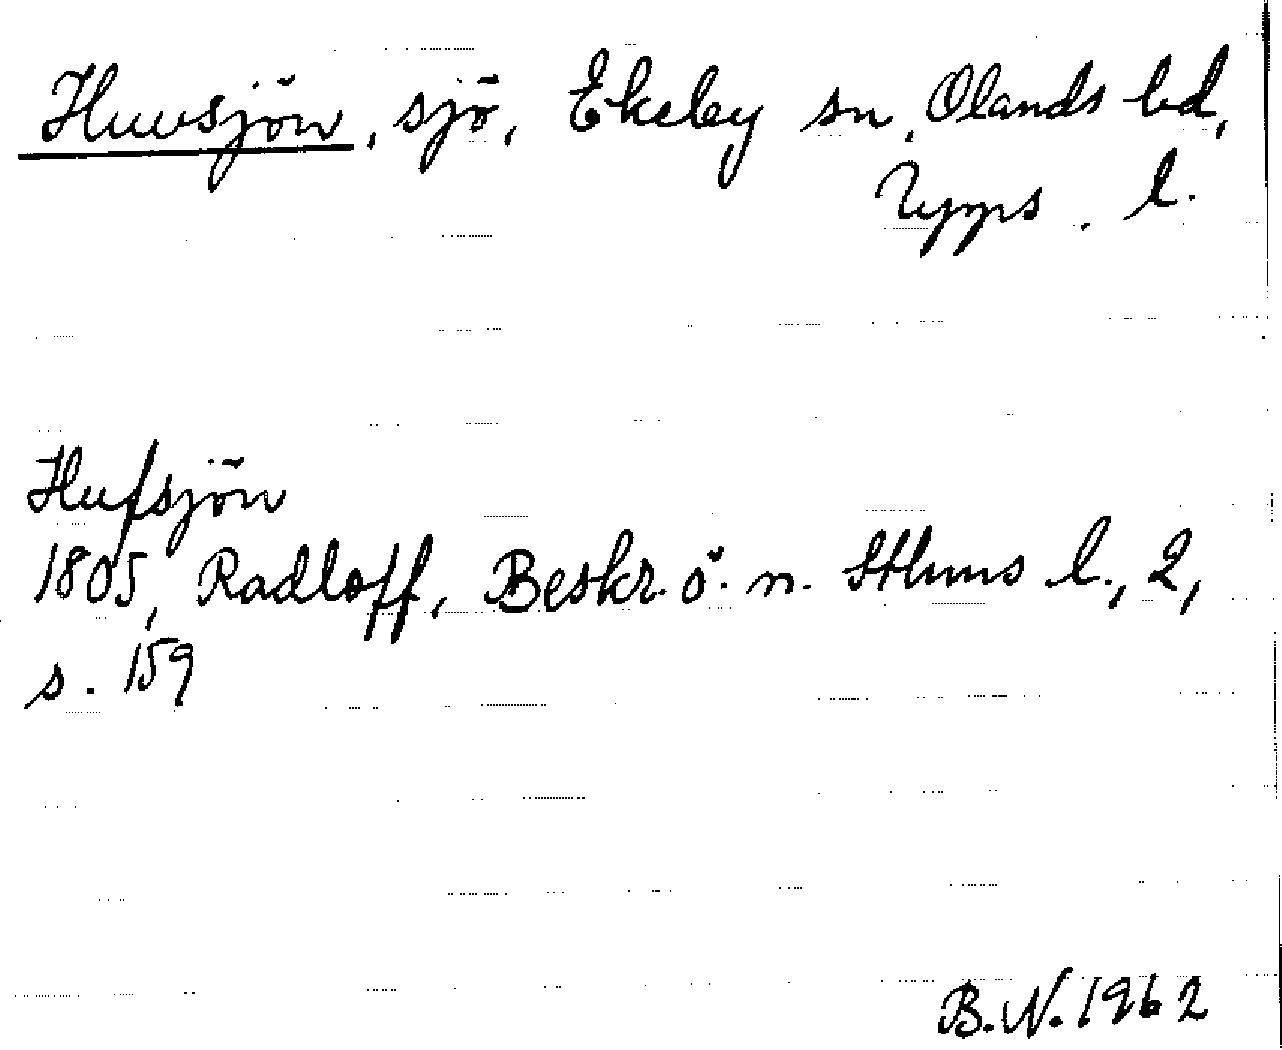 Huvsjön, sjö, Ekeby sn, Olands hd,
Upps. l.
Hufsjön
1805, Radloff, Beskr. ö. n. Sthlms l., 2,
s. 159
B.N. 1962